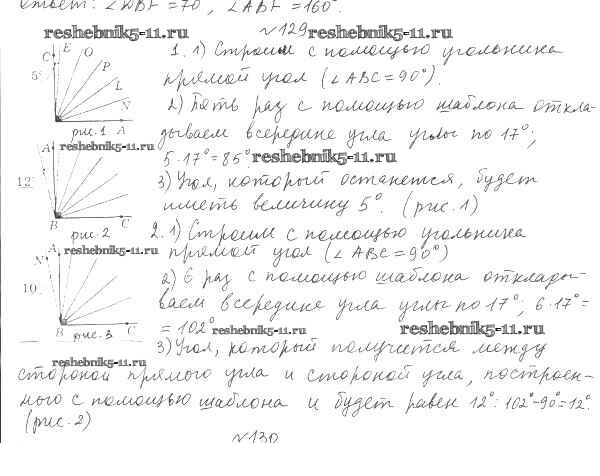 Ответ: ∠DBF = 70°, ∠ABF = 160°.
№129
reshebnik5-11.ru reshebnik5-11.ru
1. 1) Строим с помощью угольника
прямой угол (∠ABC = 90°).
2) Пять раз с помощью шаблона откла-
дываем всередине угла углы по 17°;
5·17° = 85°. reshebnik5-11.ru
3) Угол, который останется, будет
иметь величину 5°. (рис. 1)
C E O P L N A 5°
рис. 1
reshebnik5-11.ru
A 12° B C
рис. 2
2. 1) Строим с помощью угольника
reshebnik5-11.ru
прямой угол (∠ABC = 90°)
2) 6 раз с помощью шаблона отклады-
ваем всередине угла углы по 17°; 6·17° =
= 102° reshebnik5-11.ru reshebnik5-11.ru
N A 10 B C
рис. 3
3) Угол, который получится между
reshebnik5-11.ru
стороной прямого угла и стороной угла, построен-
ного с помощью шаблона и будет равен 12°: 102°-90°=12°.
(рис. 2)
№130